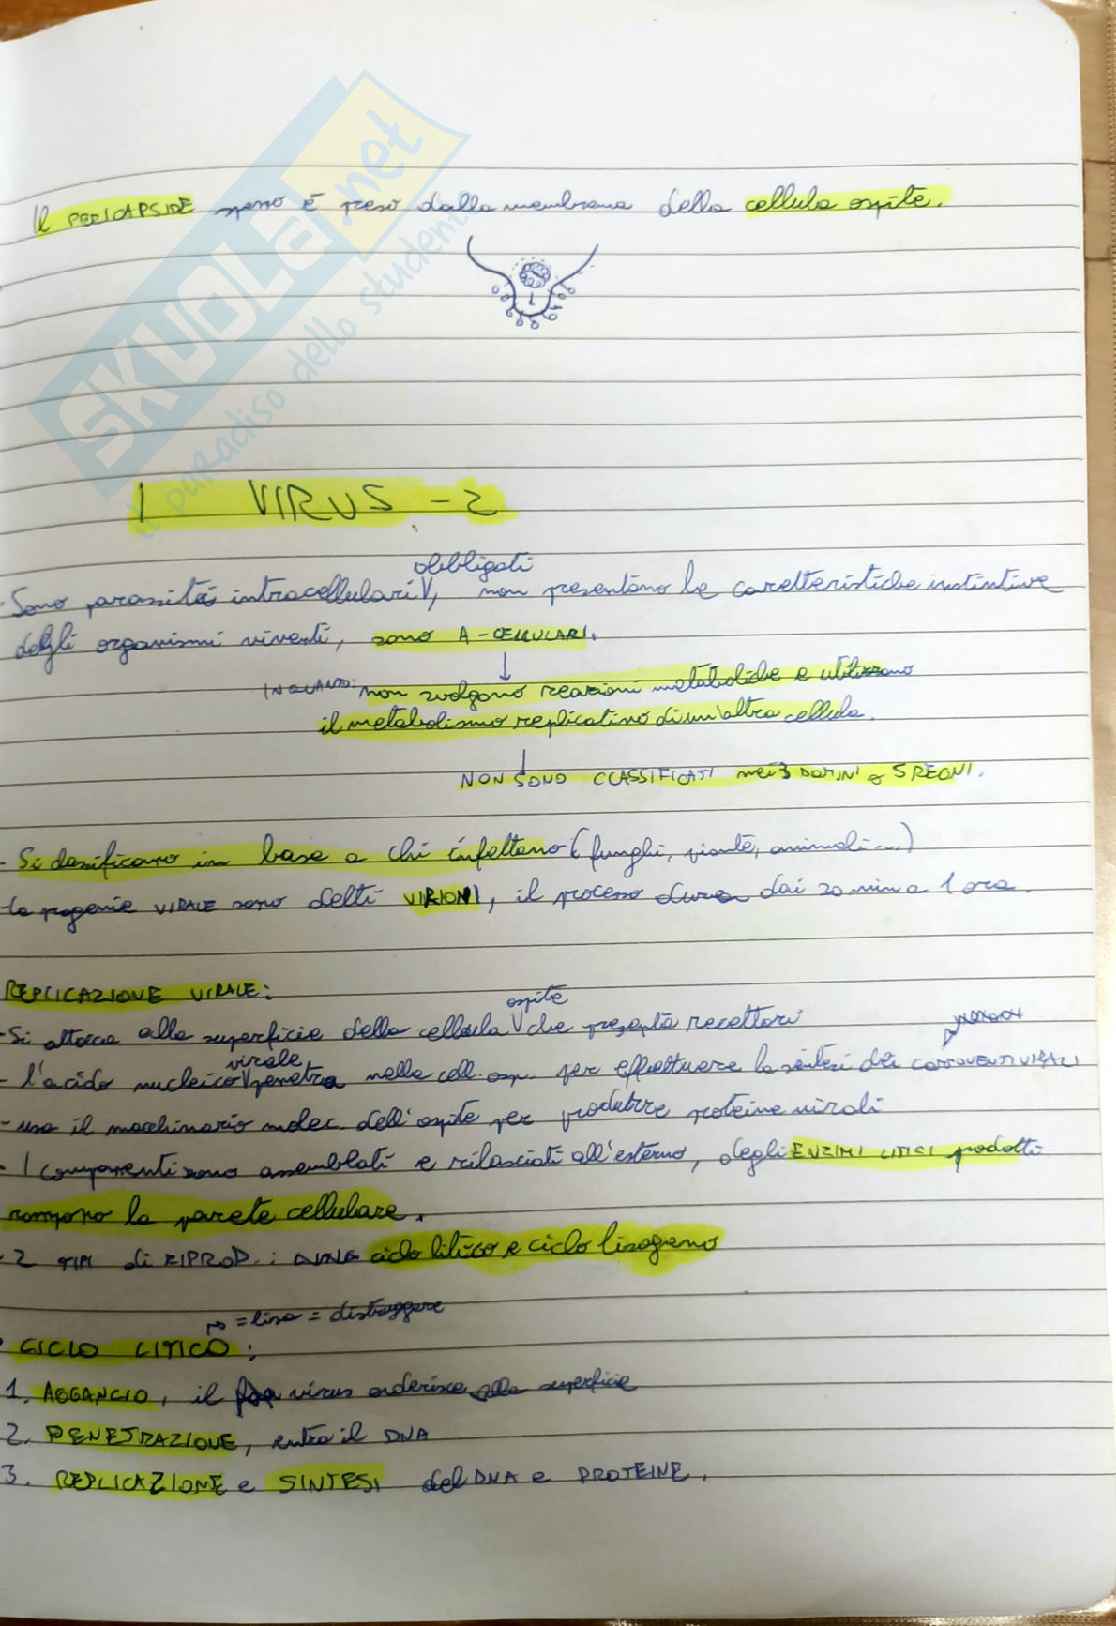 SKUOLA.net
il paradiso dello studente
Il PERICAPSIDE spesso è preso dalla membrana della cellula ospite.
I VIRUS - 2
obbligati
- Sono parassiti intracellulari V, non presentano le caratteristiche instintive
degli organismi viventi, sono A-CELLULARI.
IN QUANTO: non svolgono reazioni metaboliche e utilizzano
il metabolismo replicativo di un'altra cellula.
NON SONO CLASSIFICATI nei 3 DOMINI e 5 REGNI.
- Si classificano in base a chi infettano (funghi, piante, animali...)
la progenie VIRALE sono detti VIRIONI, il processo dura dai 20 min a 1 ora.
REPLICAZIONE VIRALE:
ospite
- Si attacca alla superficie della cellula V che presenta recettori
virale
- l'acido nucleico V penetra nella cell. osp. per effettuare la sintesi dei COMPONENTI VIRALI
- usa il macchinario molec. dell'ospite per produrre proteine virali
- I componenti sono assemblati e rilasciati all'esterno, degli ENZIMI LITICI prodotti
rompono la parete cellulare.
- 2 TIPI di RIPROD.: ciclo litico e ciclo lisogeno
= lisa = distruggere
• CICLO LITICO:
1. AGGANCIO, il virus aderisce alla superficie
2. PENETRAZIONE, entra il DNA
3. REPLICAZIONE e SINTESI del DNA e PROTEINE.